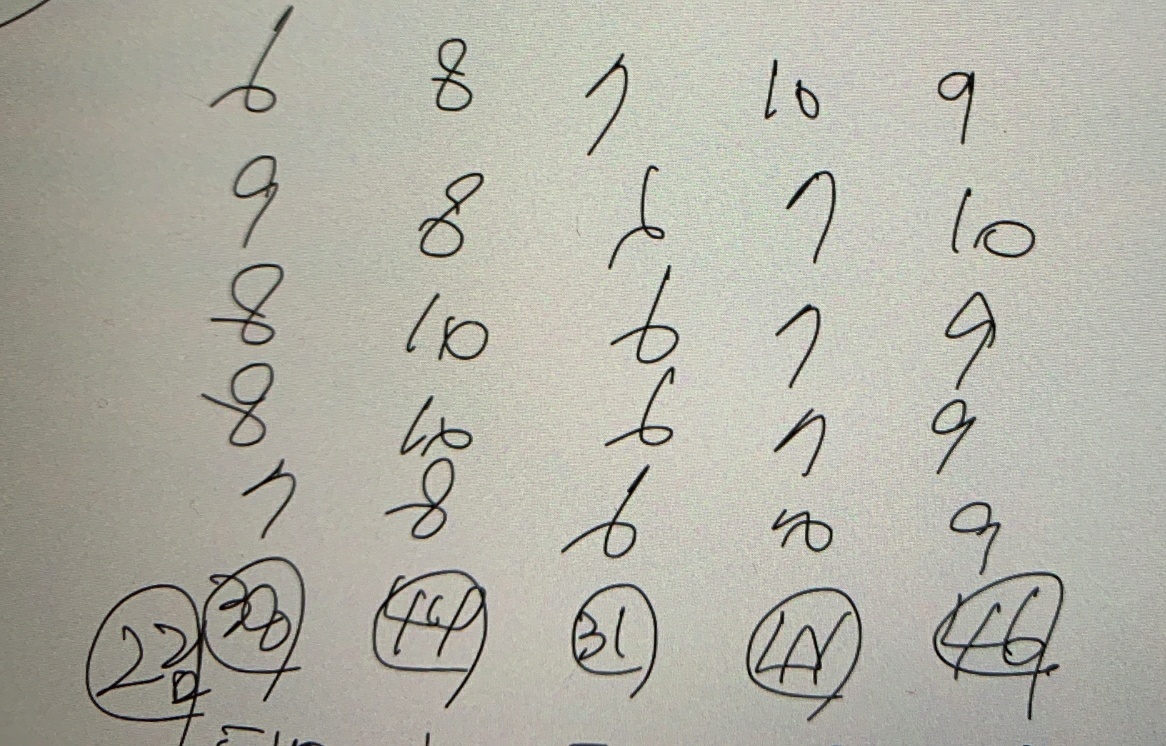 6 8 7 10 9
9 8 6 7 10
8 10 6 7 9
8 10 6 7 9
7 8 6 10 9
220 38 44 31 41 46